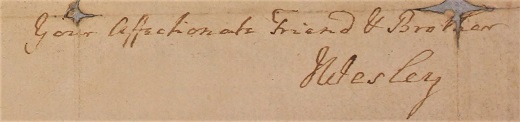 Your Affectionate Friend & Brother
JWesley